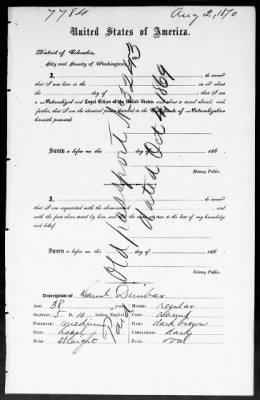 7784
Aug 2, 1870
United States of America.
District of Columbia,
City and County of Washington
I, do swear
that I was born in the on or about
the day of that I am
a Naturalized and Loyal Citizen of the United States, and about to travel abroad; and,
further, that I am the identical person described in the Certificate of Naturalization
herewith presented.
Sworn to before me this day of 186
Notary Public.
I, do swear
that I am acquainted with the above-named and with
the facts above stated by him, and that the same are true, to the best of my knowledge
and belief.
Sworn to before me this day of 186
Notary Public.
Old passport No
dated Oct 4, 1869
Paid
Description of Saml Dunbar
Age: 38
Stature: 5 10 Inches, English
Forehead: medium
Eyes: hazel
Nose: straight
Mouth: regular
Chin:
Hair: dark brown
Complexion: dark
Face: oval